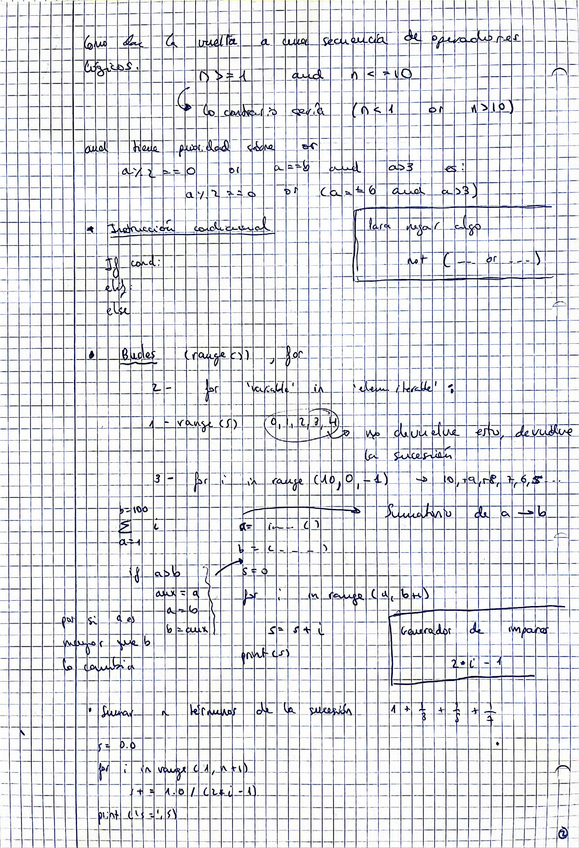 Como dar la vuelta a una secuencia de operadores
lógicos.
n >= 1 and n <= 10
lo contrario sería (n < 1 or n > 10)
and tiene prioridad sobre or
a % 2 == 0 or a == b and a > 3 es:
a % 2 == 0 or (a == b and a > 3)
* Instrucción condicional
If cond:
elif:
else
Para negar algo
not ( -- or --- )
• Bucles (range()), for
2 - for 'variable' in 'elem iterable' :
1 - range(5) 0, 1, 2, 3, 4 → no devuelve esto, devuelve
la sucesión
3 - for i in range (10, 0, -1) → 10, 9, 8, 7, 6, 5 ...
b=100
∑ i
a=1
a = i--- ()
b = ( - - - )
Sumatorio de a → b
if a>b
aux = a
a = b
b = aux
por si a es
mayor que b
lo cambia
s = 0
for i in range (a, b+1)
s = s + i
print (s)
Generador de impares
2 * i - 1
• Sumar n términos de la sucesión 1 + 1/3 + 1/5 + 1/7
s = 0.0
for i in range (1, n+1)
s += 1.0 / (2*i - 1)
print ('s =', s)
2